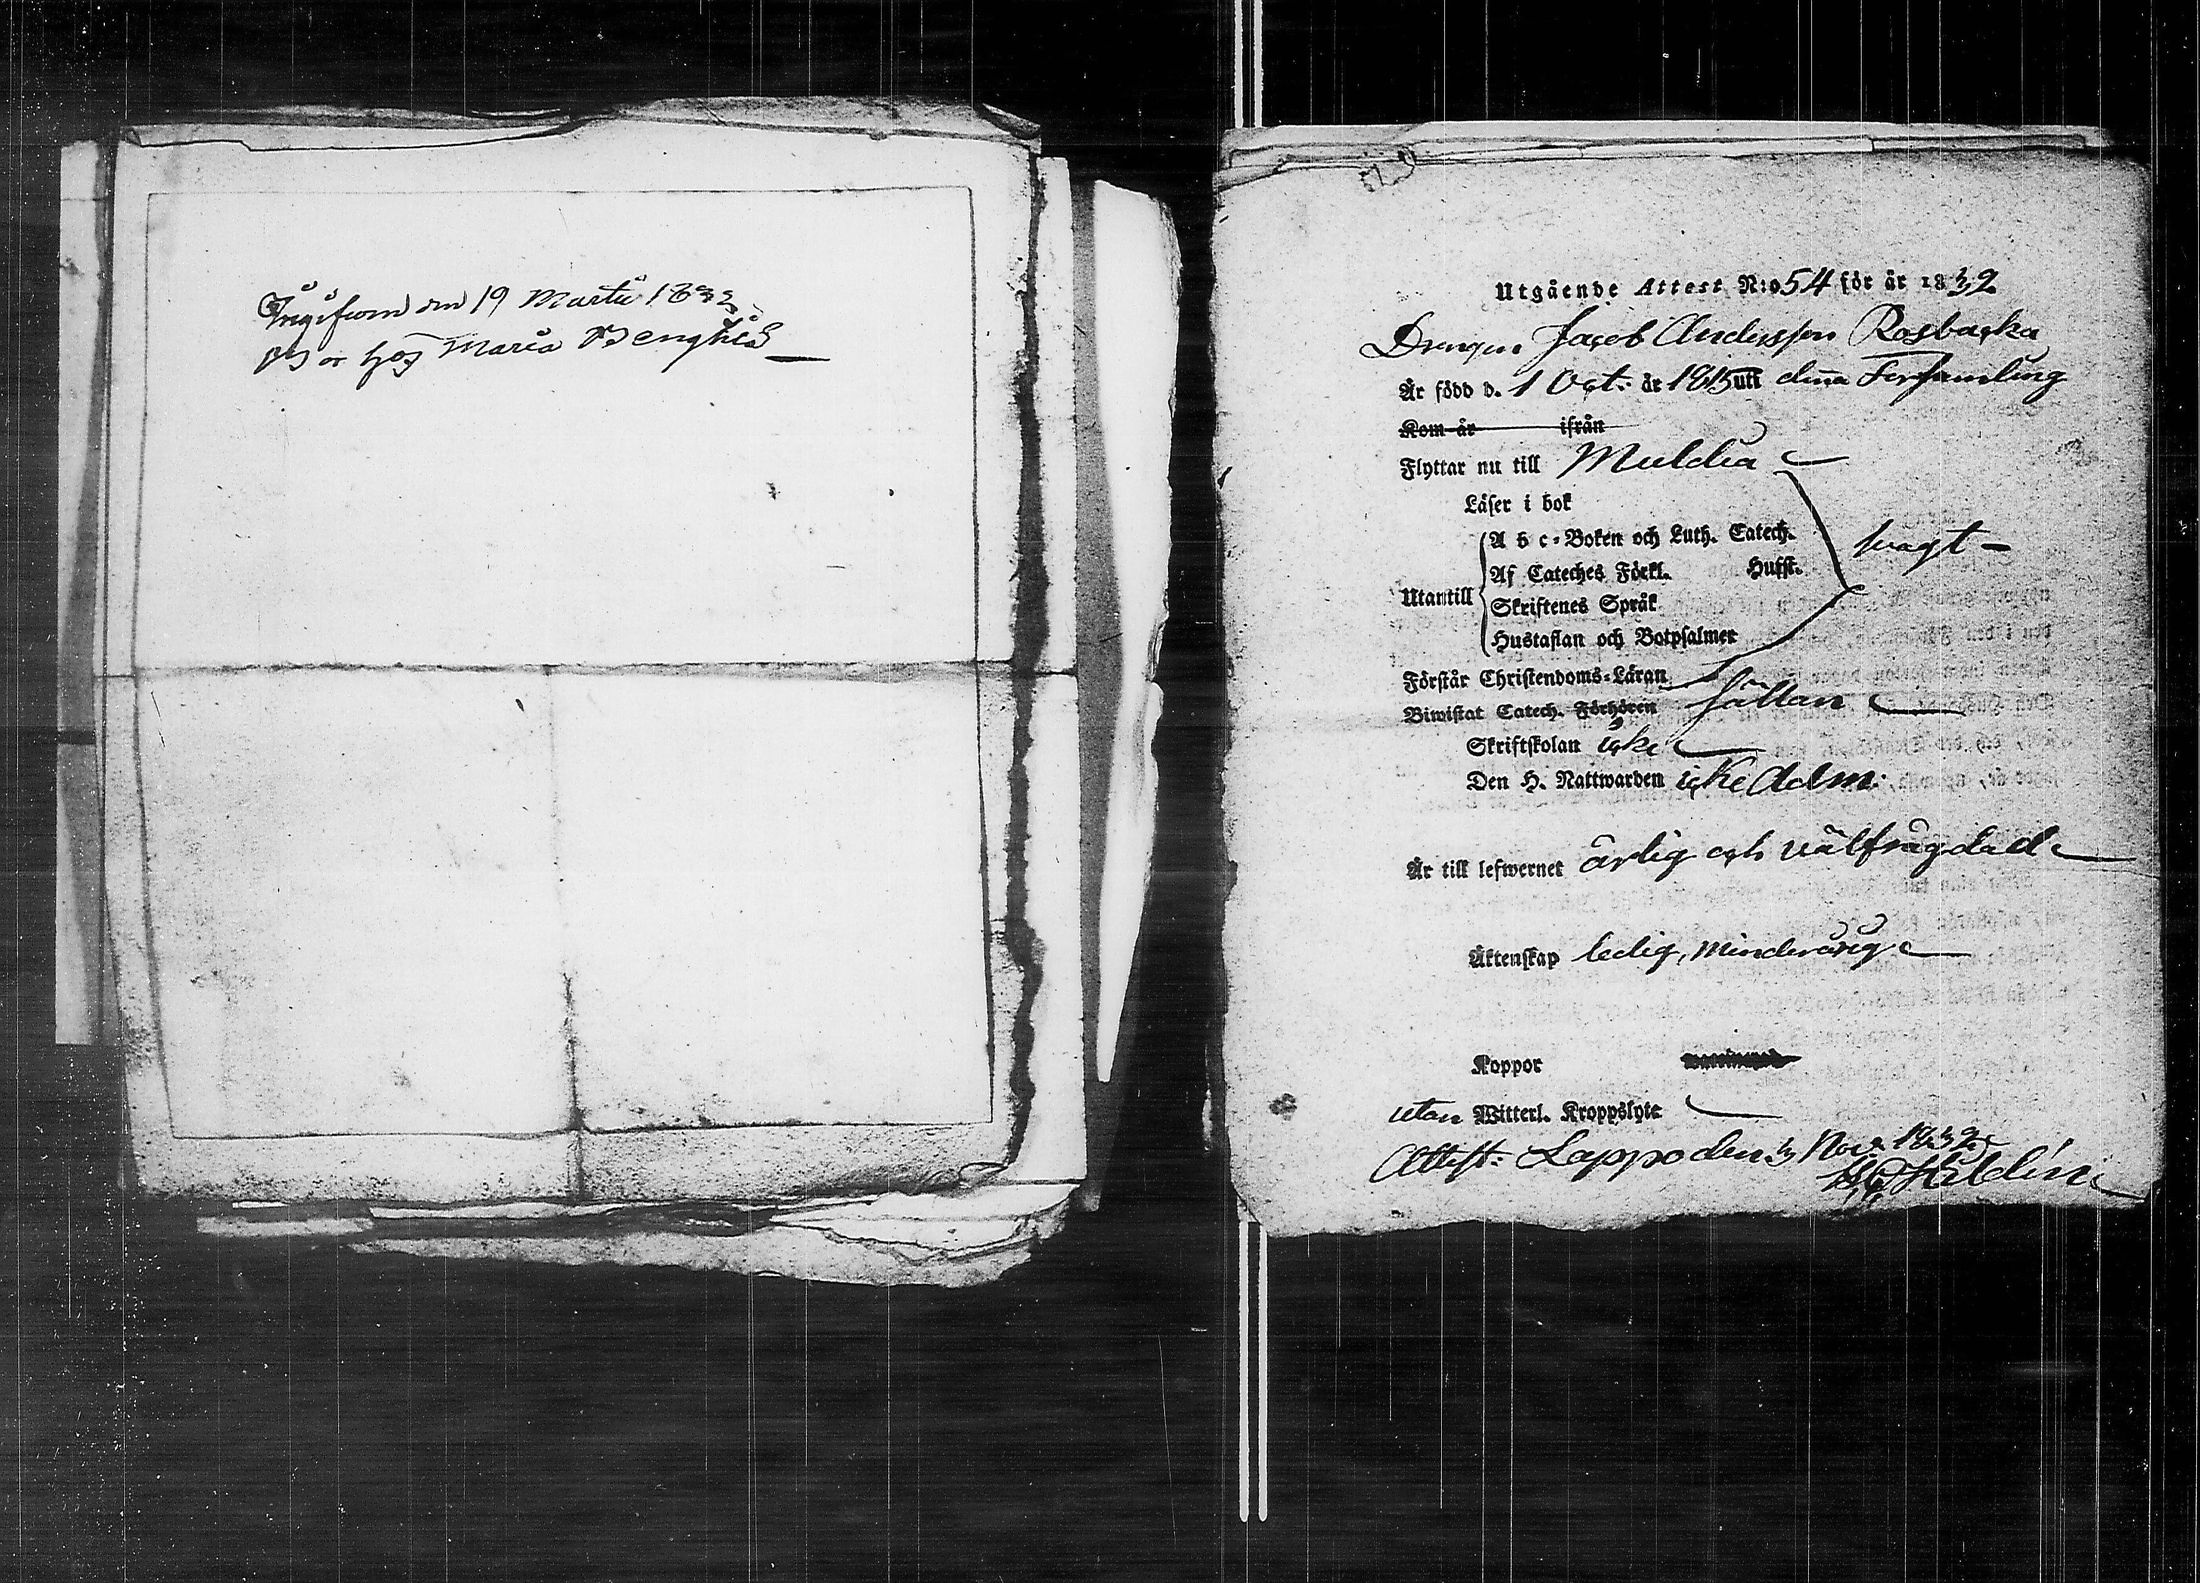 Ingifwen den 19 Martii 1833
Bor hos Maria Bengtils
Utgående Attest N:o 54 för år 1832
Drengen Jacob Andersson Rosbacka
Är född d. 1 Oct: år 1815 uti denna Församling
Kom år ifrån
Flyttar nu till Muldia
Läser i bok
A b c-Boken och Luth. Catech.
svagt
Af Cateches Förkl. Husst.
Utantill
Skriftenes Språk
Hustaflan och Botpsalmer
Förstår Christendoms-Läran
Biwistat Catech. Förhören sällan
Skriftskolan icke
Den H. Nattwarden icke Adm:
Är till lefwernet ärlig och välfrägdad
Äktenskap ledig, minderårig
Koppor
utan Witterl. Kroppslyte
Attest: Lappo den 3 Nov. 1832